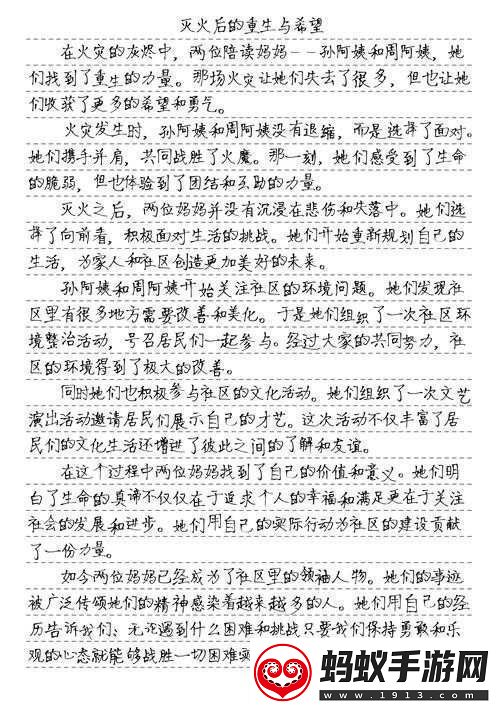 灭火后的重生与希望
在火灾的灰烬中，两位陪读妈妈--孙阿姨和周阿姨，她
们找到了重生的力量。那场火灾让她们失去了很多，但也让她
们收获了更多的希望和勇气。
火灾发生时，孙阿姨和周阿姨没有退缩，而是选择了面对。
她们携手并肩，共同战胜了火魔。那一刻，她们感受到了生命
的脆弱，但也体验到了团结和互助的力量。
灭火之后，两位妈妈并没有沉浸在悲伤和失落中。她们选
择了向前看，积极面对生活的挑战。她们开始重新规划自己的
生活，为家人和社区创造更加美好的未来。
孙阿姨和周阿姨开始关注社区的环境问题。她们发现社
区里有很多地方需要改善和美化。于是她们组织了一次社区环
境整治活动，号召居民们一起参与。经过大家的共同努力，社
区的环境得到了极大的改善。
同时她们也积极参与社区的文化活动。她们组织了一次文艺
演出活动邀请居民们展示自己的才艺。这次活动不仅丰富了居
民们的文化生活还增进了彼此之间的了解和友谊。
在这个过程中两位妈妈找到了自己的价值和意义。她们明
白了生命的真谛不仅仅在于追求个人的幸福和满足更在于关注
社会的发展和进步。她们用自己的实际行动为社区的建设贡献
了一份力量。
如今两位妈妈已经成为了社区里的领袖人物。她们的事迹
被广泛传颂她们的精神感染着越来越多的人。她们用自己的经
历告诉我们：无论遇到什么困难和挑战只要我们保持勇敢和乐
观的心态就能够战胜一切困难实
蚂蚁手游网
www.1913.com